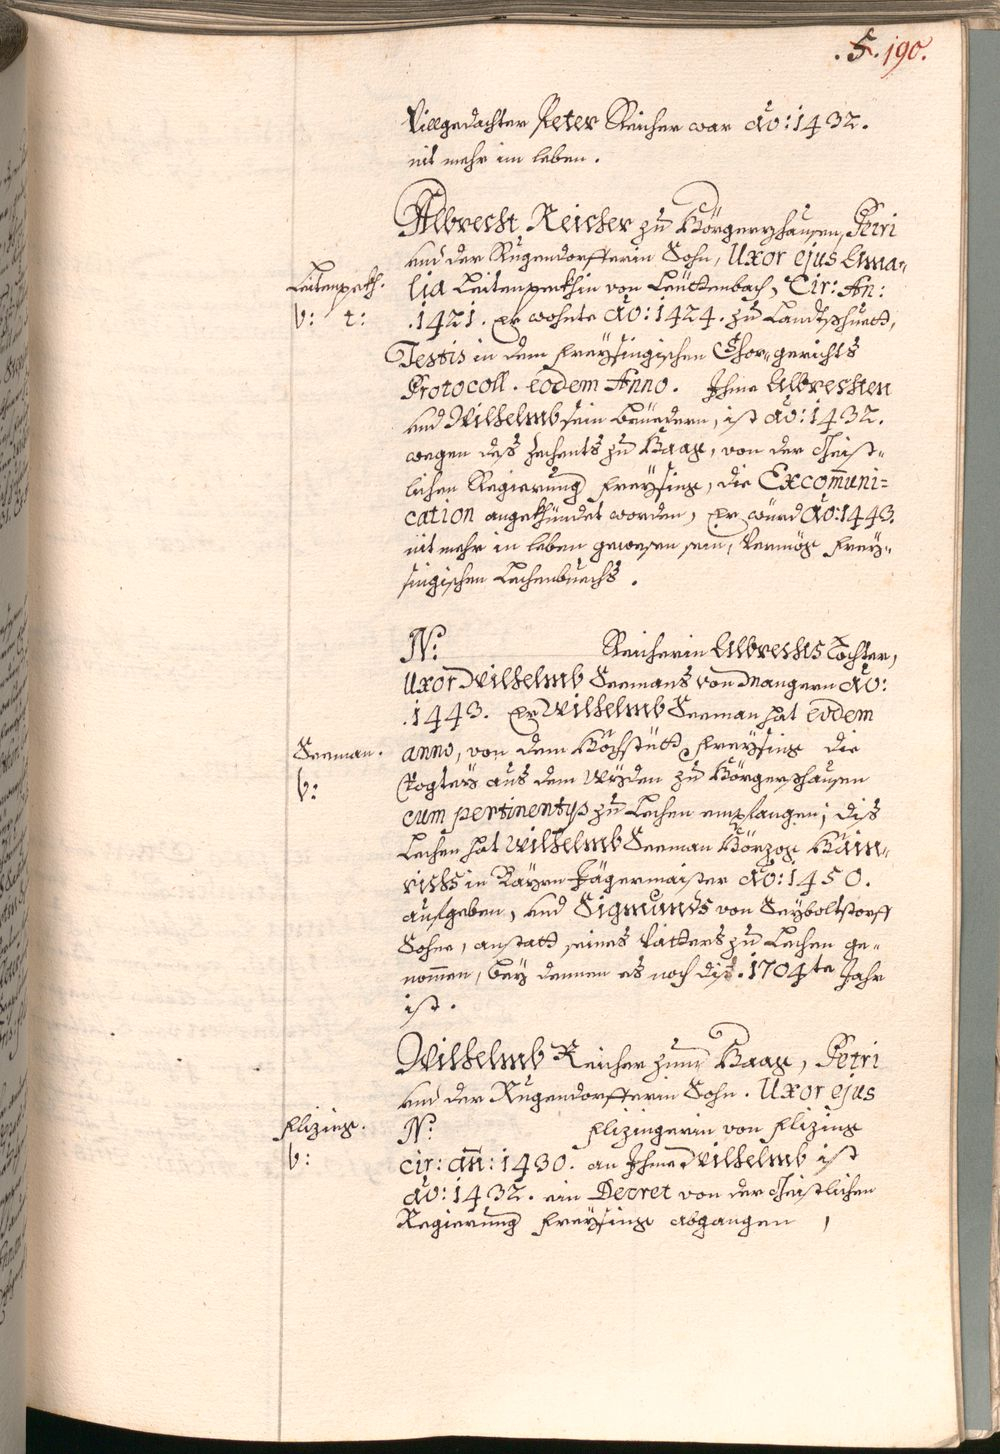 .5. 190.
Villgedachter Peter Reicher war Aō: 1432.
nit mehr im leben.
Albrecht Reicher zu Hörgerzhausen, Petri
und der Rugendorfferin Sohn, Uxor ejus Ama-
Leitenpekh. lia Leitenpekhin von Leuttenbach, Cir: An:
V: t: .1421. Er wohnte Aō: 1424. zu Landtshuett,
Testis in dem freysingischen Chor-gerichts
Protocoll. eodem Anno. Ihme Albrechten
und Wilhelmb sein Bruedern, ist Aō: 1432.
wegen des zechents zu Haag, von der Geist-
lichen Regierung freysing, die Excom̄uni=
cation angekhündet worden, Er würd Aō: 1443.
nit mehr in leben gewesen sein, Vermög frey-
singischen Lechenbuechs.
N: Reicherin Albrechts Tochter,
Uxor Wilhelmb Seemans von Mangern Aō:
.1443. Er Wilhelmb Seeman hat eodem
Seeman. anno, von dem Hochstütt freysing die
V: Vogteÿ aus dem Wÿden zu Hörgerzhausen
cum pertinentÿs zu Lechen empfangen; dis
Lechen hat Wilhelmb Seeman Hörzog Hain-
richs in Baÿrn Jägermaister Aō: 1450.
aufgeben, und Sigmunds von Seÿboltstorff
Sohne, anstatt seines Vatters zu Lechen ge-
nom̄en, beÿ dennen es noch dis .1704te Jahr
ist.
Wilhelmb Reicher zum Haag, Petri
und der Rugendorfferin Sohn. Uxor ejus
Flizing. N: Flizingerin von Flizing
V: cir: an̄: 1430. an Ihme Wilhelmb ist
Aō: 1432. ein Decret von der Geistlichen
Regierung freysing abgangen,